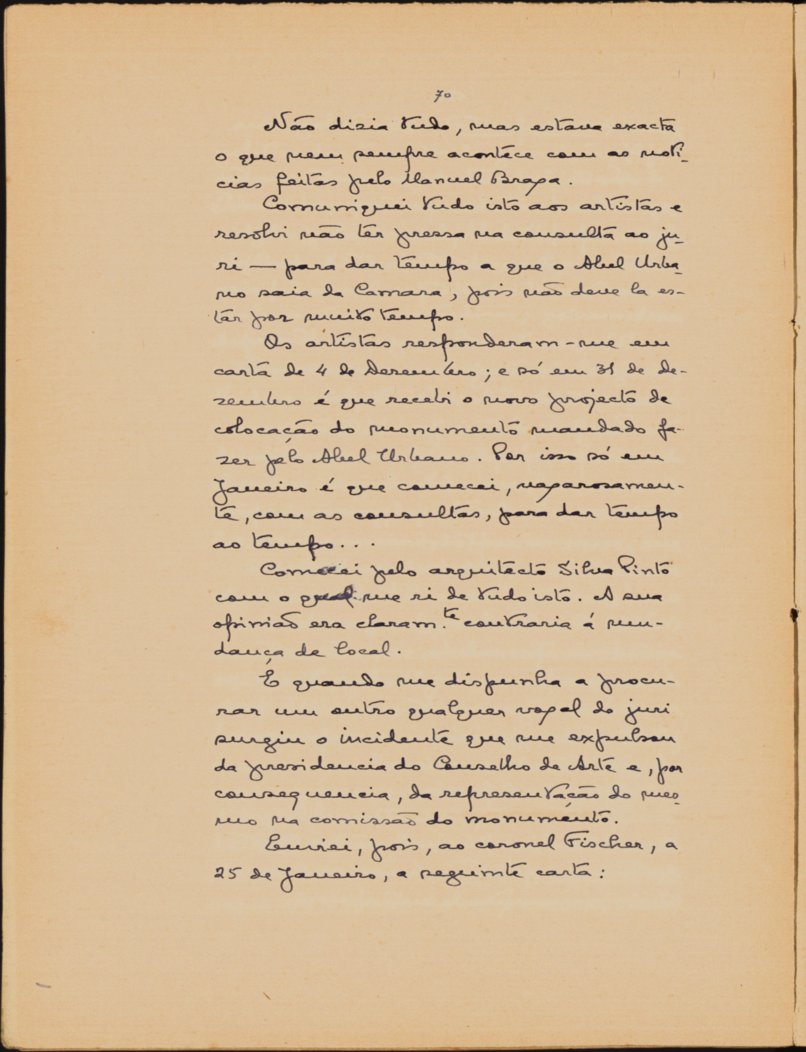 70
Não dizia tudo, mas estava exacta
o que nem sempre acontece com as notí-
cias feitas pelo Manuel Braga.
Comuniquei tudo isto aos artistas e
resolvi não ter pressa na consulta ao ju-
ri — para dar tempo a que o Abel Urba-
no saia da Camara, pois não deve la es-
tár por muito tempo.
Os artistas responderam-me em
carta de 4 de Dezembro; e só em 31 de de-
zembro é que recebi o novo projecto de
colocação do monumento mandado fa-
zer pelo Abel Urbano. Por isso só em
Janeiro é que comecei, vagarosamen-
te, com as consultas, para dar tempo
ao tempo...
Comecei pelo arquitecto Silva Pinto
com o qual me ri de tudo isto. A sua
opinião era claram.te contraria á mu-
dança de local.
E quando me dispunha a procu-
rar um outro qualquer vogal do juri
surgiu o incidente que me expulsou
da presidencia do Conselho de Arte e, por
consequencia, da representação do mes-
mo na comissão do monumento.
Enviei, pois, ao coronel Fischer, a
25 de Janeiro, a seguinte carta: